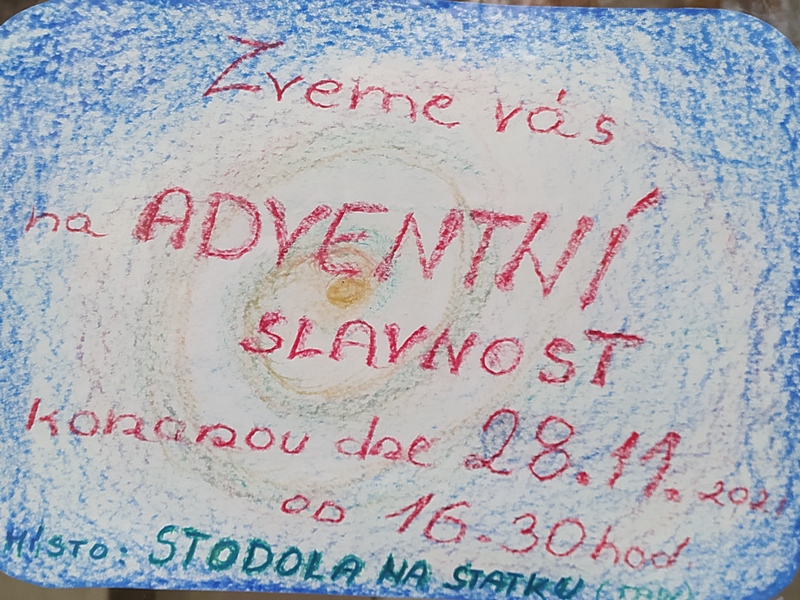 Zveme vás
na ADVENTNÍ
SLAVNOST
konanou dne 28.11. 2021
od 16.30 hod.
MÍSTO: STODOLA NA STATKU